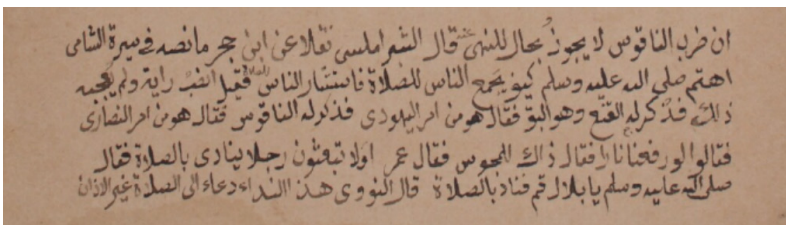 ان ضرب الناقوس لا يجوز بحال للنهى عنه قال الشبراملسى نقلا عن ابن حجر ما نصه فى سيرة الشامى
اهتم صلى الله عليه وسلم كيف يجمع الناس للصلاة فاستشار الناس فقيل انصب راية ولم يعجبه
ذلك فذكر له القنع وهو البوق فقال هو من امر اليهود فذكر له الناقوس فقال هو من امر النصارى
فقالوا لو رفعنا نارا فقال ذاك للمجوس فقال عمر اولا تبعثون رجلا ينادى بالصلاة فقال
صلى الله عليه وسلم يا بلال قم فناد بالصلاة قال النووى هذا النداء دعاء الى الصلاة غير الاذان